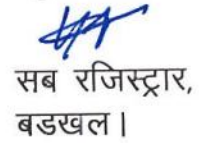 सब रजिस्ट्रार,
बडखल।